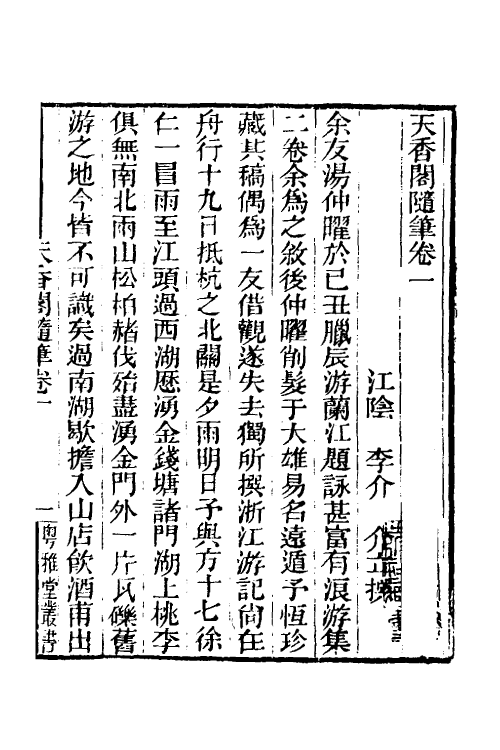 天香閣隨筆卷一
江陰 李介 介立撰
余友湯仲曜於己丑臘辰游蘭江題詠甚富有浪游集
二卷余為之敘後仲曜削髮于大雄易名遠遁予恆珍
藏其稿偶為一友借觀遂失去獨所撰浙江游記尙在
舟行十九日抵杭之北關是夕雨明日予與方十七徐
仁一冒雨至江頭過西湖歷湧金錢塘諸門湖上桃李
俱無南北兩山松柏赭伐殆盡湧金門外一片瓦礫舊
游之地今皆不可識矣過南湖歇擔入山店飲酒甫出
天香閣隨筆卷一
一
粵雅堂叢書